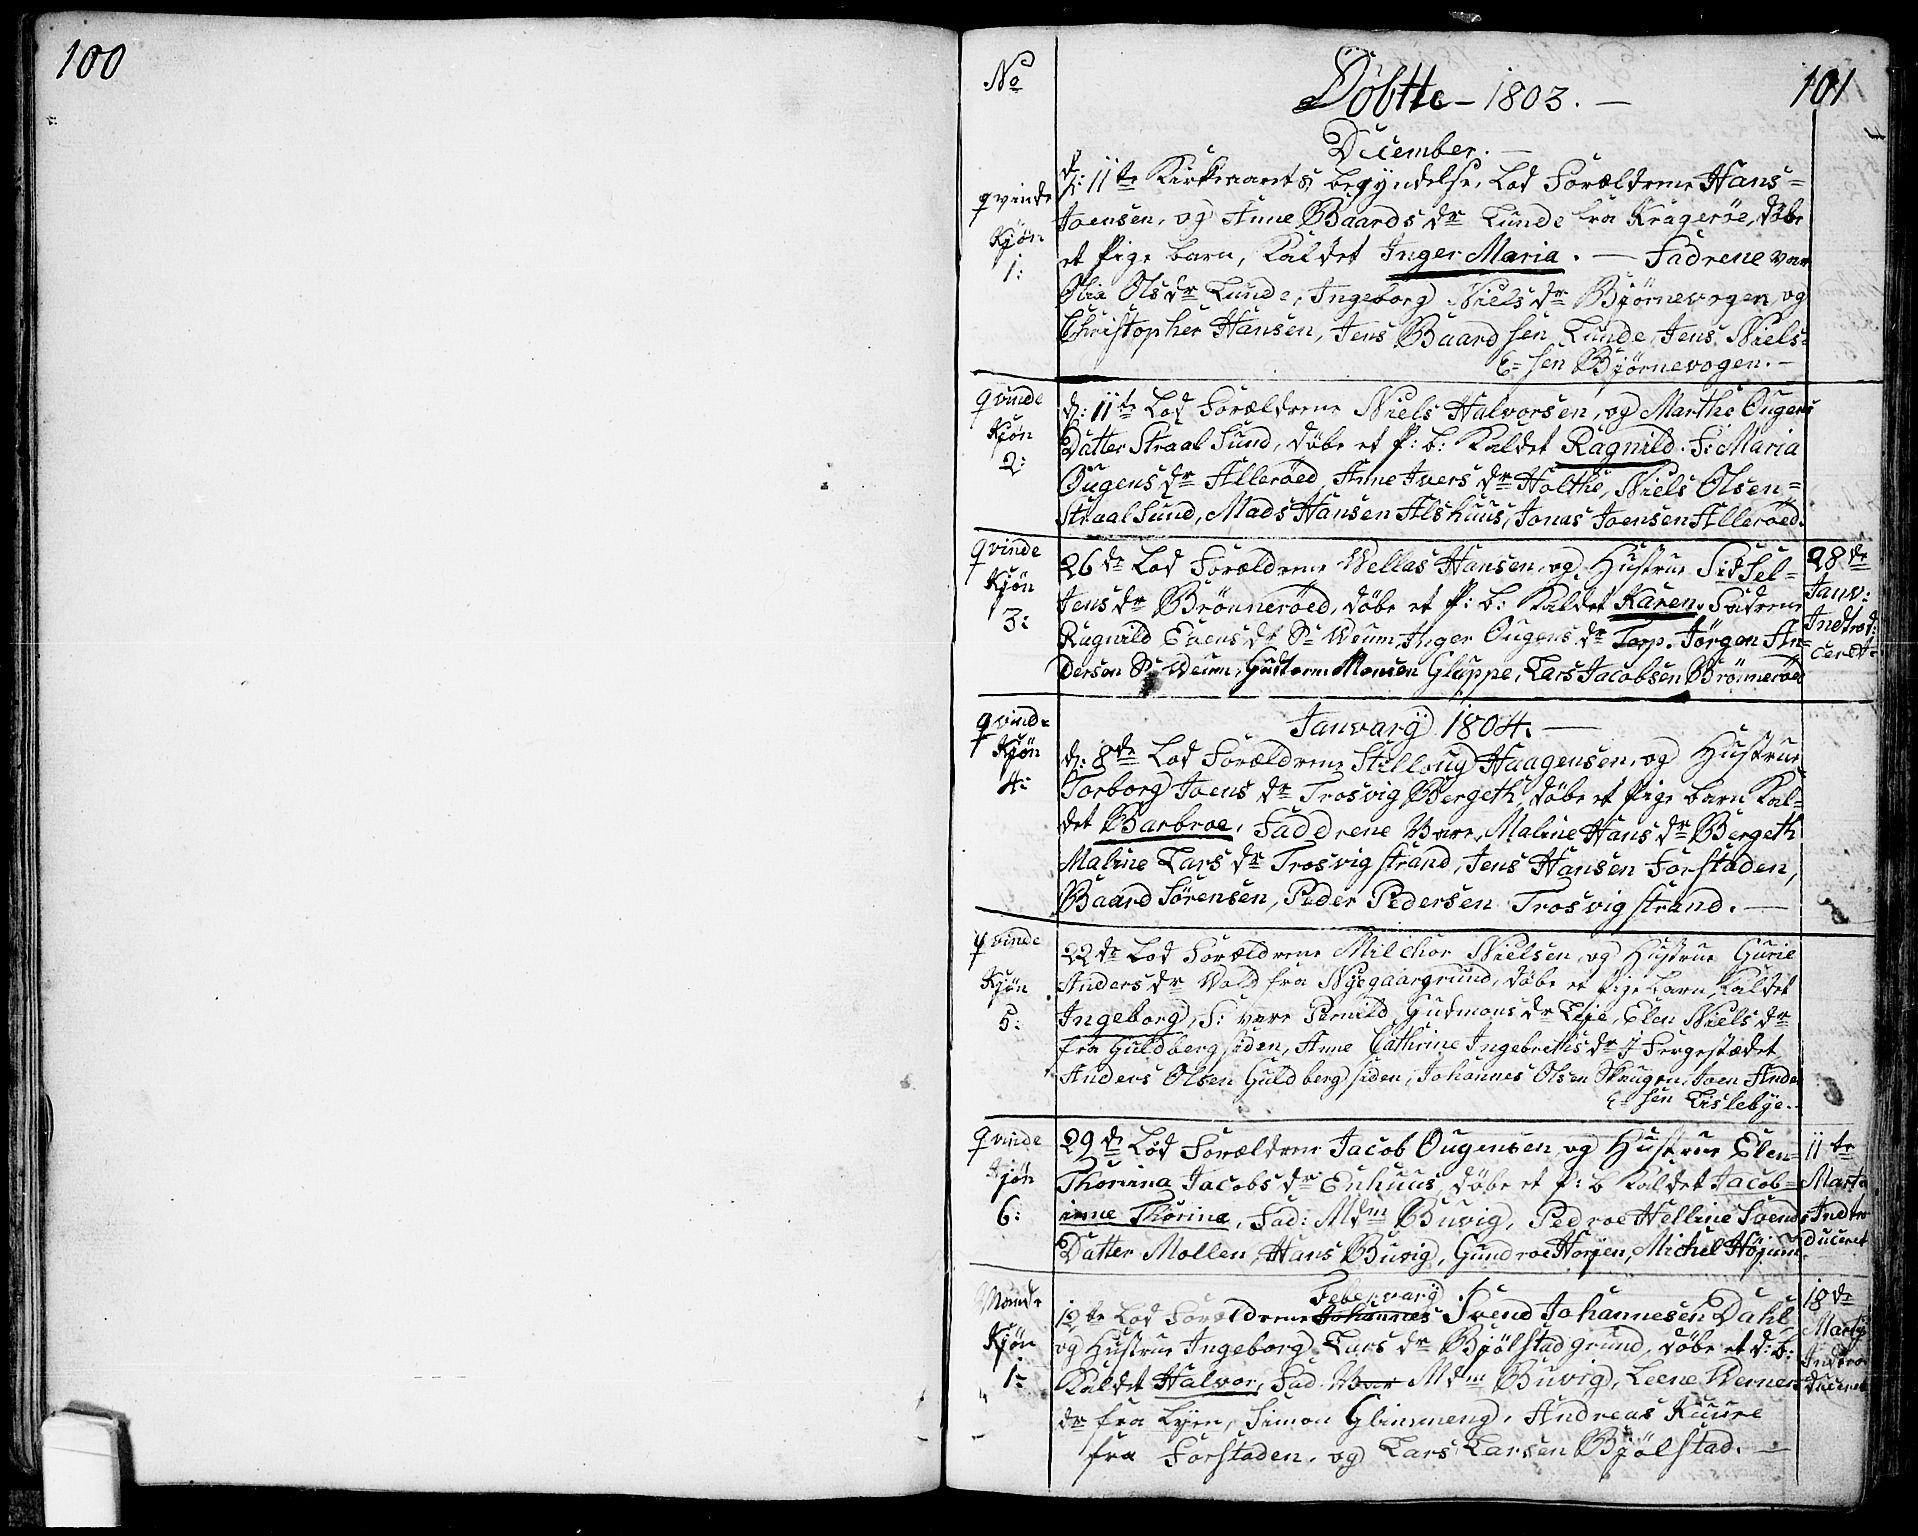 100
No
Döbtte - 1803. -
101
December. -
qvinde
Kjøn
1:
d: 11te Kirkeaarets begyndelse, Lod Forældrene Hans=
Joensen, og Anne Baards dr Lunde fra Kragerøe, døbe
et Pige barn, Kaldet Inger Maria. - Fadrene var
Olia Ols dr Lunde, Ingeborg Niels dr Bjørnevogen, og
Christopher Hansen, Jens Baardsen Lunde, Jens Niels=
sen Bjørnevogen. -
qvinde
Kjøn
2:
d: 11te Lod Forældrene Niels Halvorsen, og Marthe Ougens
Datter Straalsund, døbe et P: b: Kaldet Ragnild. F: Maria
Ougens dr Allerøed, Anne Ivers dr Holthe, Niels Olsen=
Straalsund, Mads Hansen Alshuus, Jonas Joensen Allerøed.
qvinde
Kjøn
3:
26de Lod Forældrene Wellas Hansen, og Hustrue Sidsel=
Jens dr Brønnerøed, døbe et P: b: Kaldet Karen. Fadrene
Ragnild Evens dr St Weum, Inger Ougens dr Torp. Jørgen An=
dersen St Weum, Guttorm Monsen Gluppe, Lars Jacobsen Brønnerøed
28de
Janv:
Indtrod:
ceret.
Janvary 1804. -
qvinde
Kjøn
4:
d: 8de Lod Forældrene Stilloug Haagensen, og Hustrue
Torborg Joens dr Trosvig Bergeth, døbe et Pige barn Kal=
det Barbroe, Faddrene Vare, Maline Hans dr Bergeth
Maline Lars dr Trosvigstrand, Jens Hansen Forstaden,
Baard Sørensen, Peder Pedersen Trosvigstrand. -
qvinde
Kjøn
5:
22de Lod Forældrene Milchor Nielsen, og Hustrue Gurie
Anders dr Wold fra Nygaargrund, døbe et Pige barn, Kaldet
Ingeborg, F: vare Pernild Gudmons dr Leje, Elen Niels dr
fra Guldbergsiden, Anne Cathrine Ingebrettis dr I Fergestædet
Anders Olsen Guldbergsiden, Johannes Olsen Skougen, Joen Ander
sen Lislebye.
qvinde
Kjøn
6:
29de Lod Forældrene Jacob Ougensen, og Hustrue Elen=
Thorina Jacobs dr Enhuus, døbe et P: b Kaldet Jacob=
inne Thorine, Fad: Mdm Buvig, Pedroe Helline Svends
Datter Mollen, Hans Buvig, Gundroe Horjen, Michel Højum.
11te
Marti
Indtro
duceret
Febervary.
Mande
Kjøn
1:
12te Lod Forældrene Johannes Svend Johannesen Dahl,
og Hustrue Ingeborg Lars dr Bjølstadgrund, døbe et d: b:
Kaldet Halvor, Fad: Var Mdm Buvig, Leene Werners
dr fra Lyen, Simon Glimmeng, Andreas Kuure
fra Forstaden, og Lars Larsen Bjølstad. -
18de
Marty
Indtro
duceret